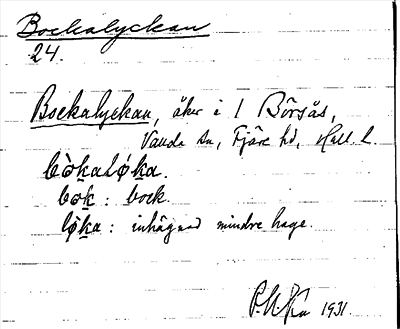 Bockalyckan
24.
Bockalyckan, åker i 1 Börsås,
Valda sn, Fjäre hd, Hall. l.
bòkaløka.
bok : bock
løka : inhägnad mindre hage.
1931.